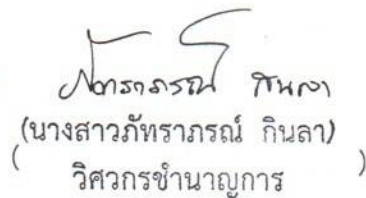 ภัทราภรณ์ กินลา
(นางสาวภัทราภรณ์ กินลา)
( วิศวกรชำนาญการ )